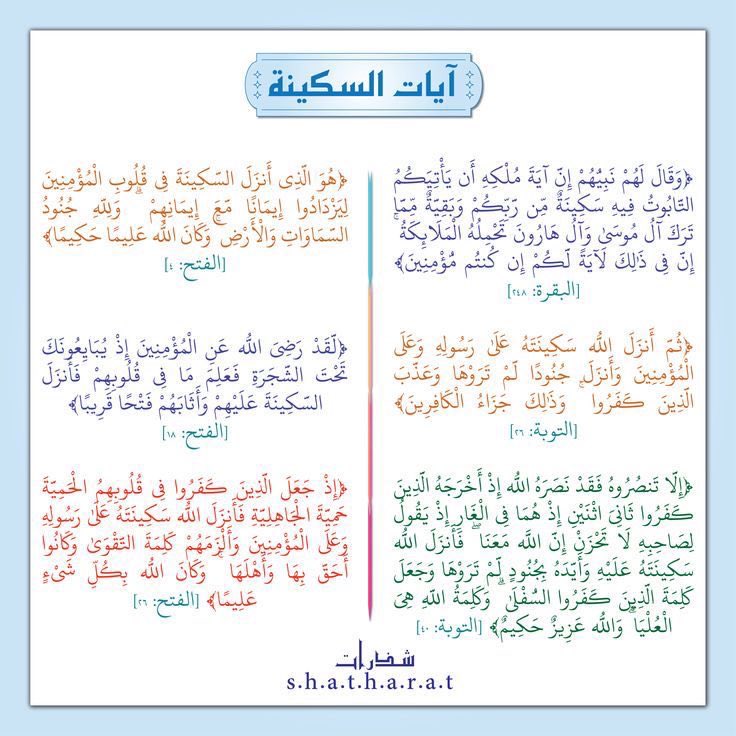 آيات السكينة
﴿وَقَالَ لَهُمْ نَبِيُّهُمْ إِنَّ آيَةَ مُلْكِهِ أَن يَأْتِيَكُمُ
التَّابُوتُ فِيهِ سَكِينَةٌ مِّن رَّبِّكُمْ وَبَقِيَّةٌ مِّمَّا
تَرَكَ آلُ مُوسَىٰ وَآلُ هَارُونَ تَحْمِلُهُ الْمَلَائِكَةُ ۚ
إِنَّ فِي ذَٰلِكَ لَآيَةً لَّكُمْ إِن كُنتُم مُّؤْمِنِينَ﴾
[البقرة: ٢٤٨]
﴿ثُمَّ أَنزَلَ اللَّهُ سَكِينَتَهُ عَلَىٰ رَسُولِهِ وَعَلَى
الْمُؤْمِنِينَ وَأَنزَلَ جُنُودًا لَّمْ تَرَوْهَا وَعَذَّبَ
الَّذِينَ كَفَرُوا ۚ وَذَٰلِكَ جَزَاءُ الْكَافِرِينَ﴾
[التوبة: ٢٦]
﴿إِلَّا تَنصُرُوهُ فَقَدْ نَصَرَهُ اللَّهُ إِذْ أَخْرَجَهُ الَّذِينَ
كَفَرُوا ثَانِيَ اثْنَيْنِ إِذْ هُمَا فِي الْغَارِ إِذْ يَقُولُ
لِصَاحِبِهِ لَا تَحْزَنْ إِنَّ اللَّهَ مَعَنَا ۖ فَأَنزَلَ اللَّهُ
سَكِينَتَهُ عَلَيْهِ وَأَيَّدَهُ بِجُنُودٍ لَّمْ تَرَوْهَا وَجَعَلَ
كَلِمَةَ الَّذِينَ كَفَرُوا السُّفْلَىٰ ۗ وَكَلِمَةُ اللَّهِ هِيَ
الْعُلْيَا ۗ وَاللَّهُ عَزِيزٌ حَكِيمٌ﴾ [التوبة: ٤٠]
﴿هُوَ الَّذِي أَنزَلَ السَّكِينَةَ فِي قُلُوبِ الْمُؤْمِنِينَ
لِيَزْدَادُوا إِيمَانًا مَّعَ إِيمَانِهِمْ ۗ وَلِلَّهِ جُنُودُ
السَّمَاوَاتِ وَالْأَرْضِ ۚ وَكَانَ اللَّهُ عَلِيمًا حَكِيمًا﴾
[الفتح: ٤]
﴿لَّقَدْ رَضِيَ اللَّهُ عَنِ الْمُؤْمِنِينَ إِذْ يُبَايِعُونَكَ
تَحْتَ الشَّجَرَةِ فَعَلِمَ مَا فِي قُلُوبِهِمْ فَأَنزَلَ
السَّكِينَةَ عَلَيْهِمْ وَأَثَابَهُمْ فَتْحًا قَرِيبًا﴾
[الفتح: ١٨]
﴿إِذْ جَعَلَ الَّذِينَ كَفَرُوا فِي قُلُوبِهِمُ الْحَمِيَّةَ
حَمِيَّةَ الْجَاهِلِيَّةِ فَأَنزَلَ اللَّهُ سَكِينَتَهُ عَلَىٰ رَسُولِهِ
وَعَلَى الْمُؤْمِنِينَ وَأَلْزَمَهُمْ كَلِمَةَ التَّقْوَىٰ وَكَانُوا
أَحَقَّ بِهَا وَأَهْلَهَا ۚ وَكَانَ اللَّهُ بِكُلِّ شَيْءٍ
عَلِيمًا﴾ [الفتح: ٢٦]
شذرات
s.h.a.t.h.a.r.a.t